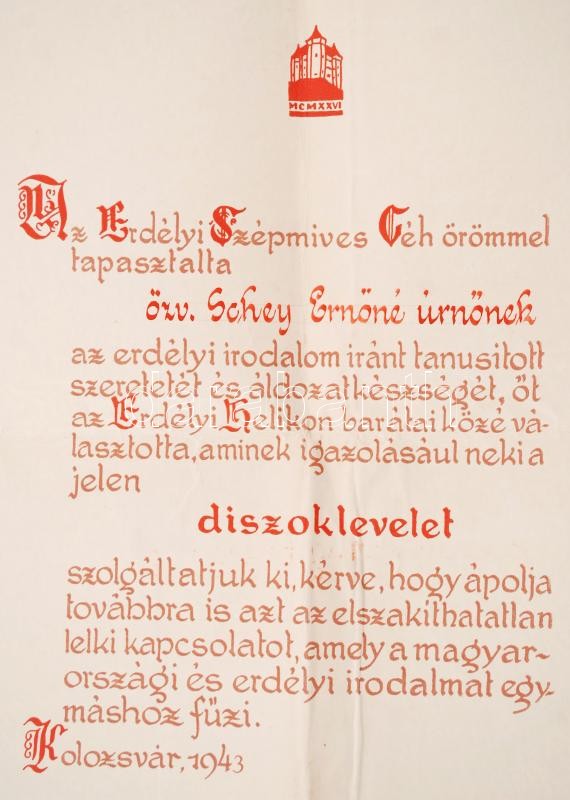 MCMXXVI
Az Erdélyi Szépmives Céh örömmel
tapasztalta
özv. Schey Ernőné úrnőnek
az erdélyi irodalom iránt tanusitott
szeretetét és áldozatkészségét, őt
az Erdélyi Helikon barátai közé vá-
lasztotta, aminek igazolásául neki a
jelen
diszoklevelet
szolgáltatjuk ki, kérve, hogy ápolja
továbbra is azt az elszakithatatlan
lelki kapcsolatot, amely a magyar-
országi és erdélyi irodalmat egy-
máshoz fűzi.
Kolozsvár, 1943